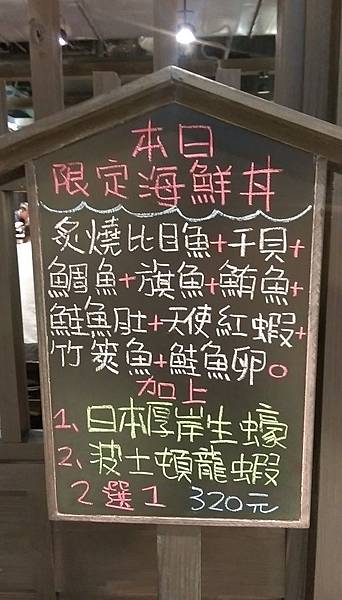 本日
限定海鮮丼
炙燒比目魚+干貝+
鯛魚+旗魚+鮪魚+
鮭魚肚+天使紅蝦+
竹筴魚+鮭魚卵。
加上
1、日本厚岸生蠔
2、波士頓龍蝦
2選1 320元